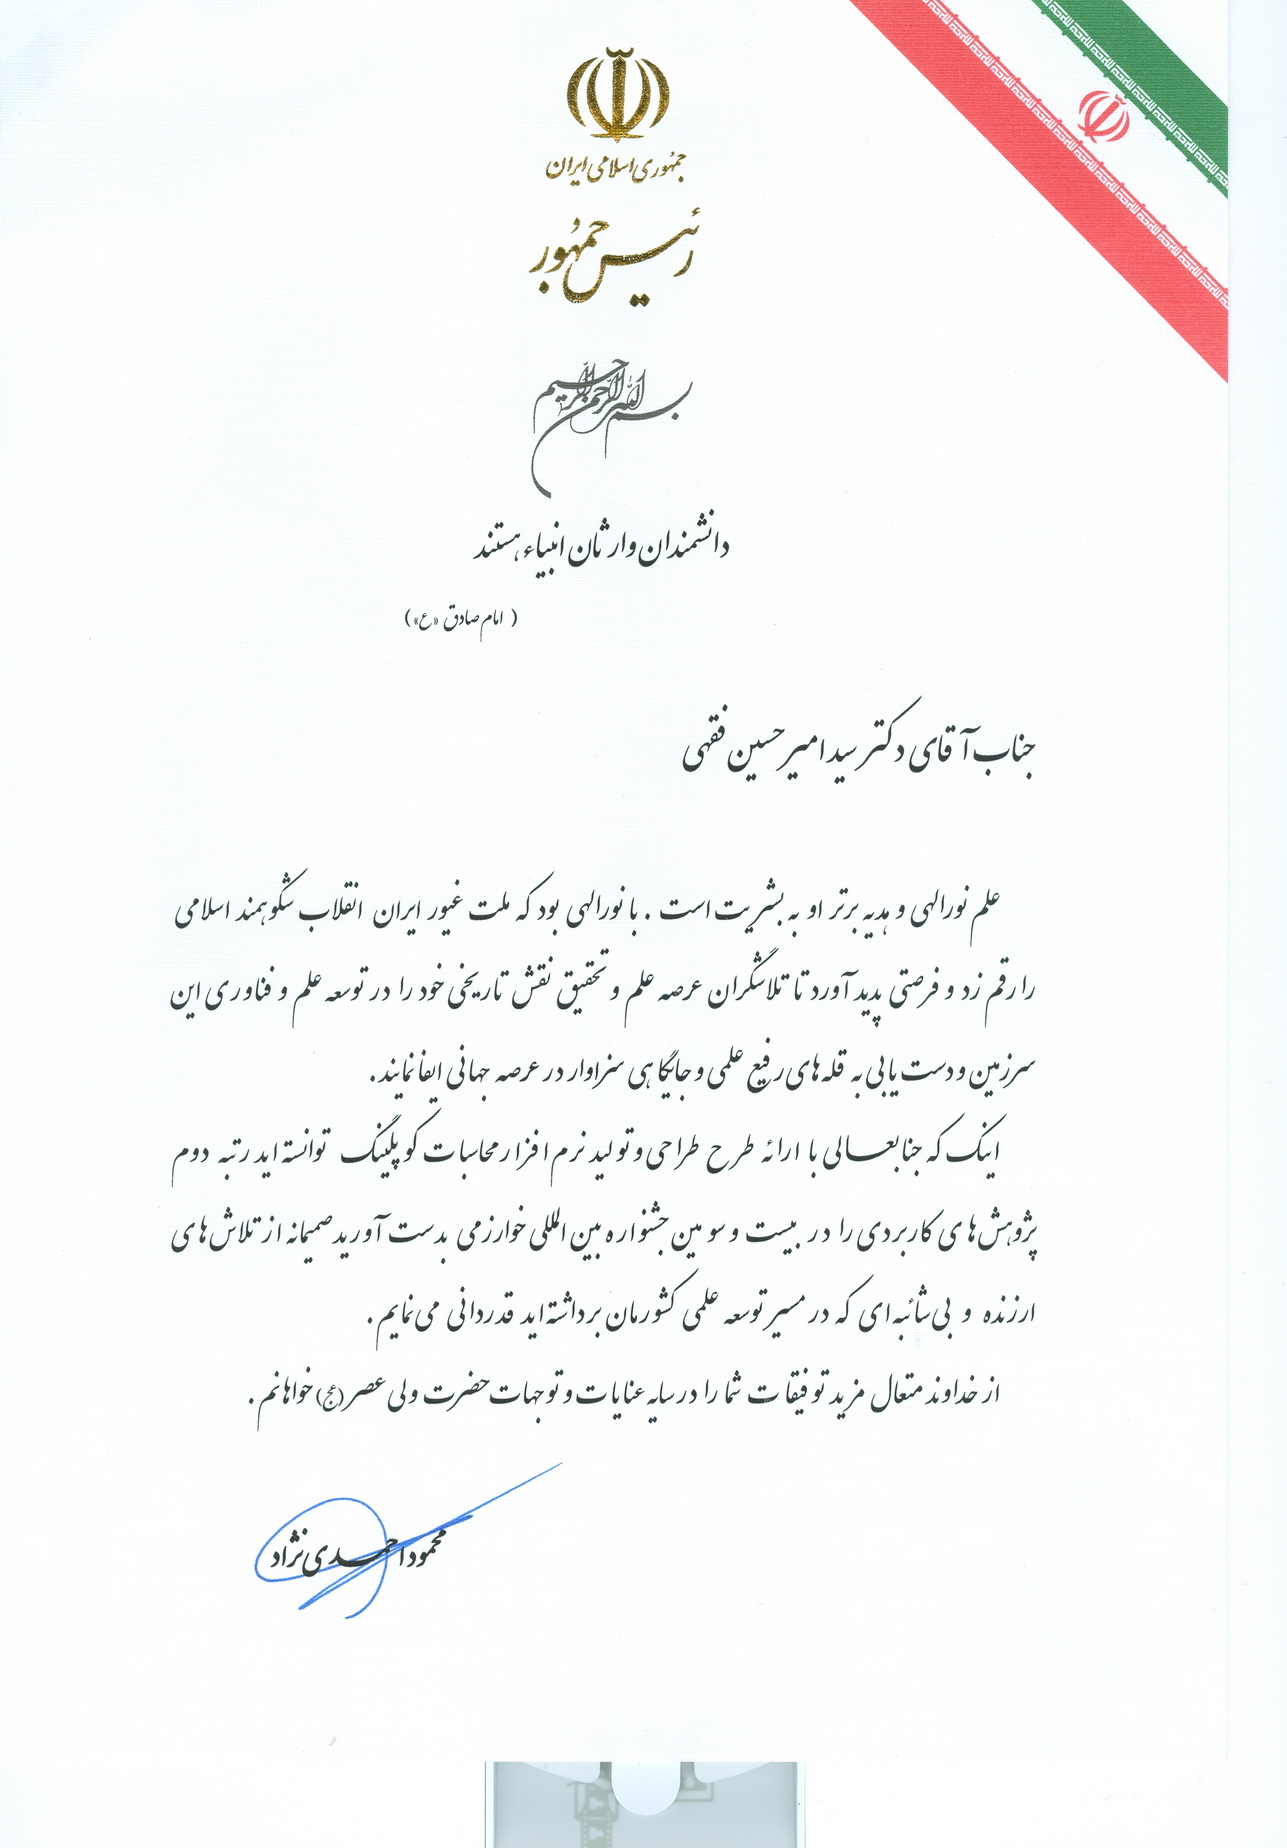 جمهوری اسلامی ایران
رئیس جمهور
بسم الله الرحمن الرحیم
دانشمندان وارثان انبیاء هستند
( امام صادق «ع» )
جناب آقای دکتر سید امیر حسین فقهی
علم نور الهی و هدیه برتر او به بشریت است . با نور الهی بود که ملت غیور ایران انقلاب شکوهمند اسلامی
را رقم زد و فرصتی پدید آورد تا تلاشگران عرصه علم و تحقیق نقش تاریخی خود را در توسعه علم و فناوری این
سرزمین و دست یابی به قله های رفیع علمی و جایگاهی سزاوار در عرصه جهانی ایفا نمایند.
اینک که جنابعالی با ارائه طرح طراحی و تولید نرم افزار محاسبات کوپلینگ توانسته اید رتبه دوم
پژوهش های کاربردی را در بیست و سومین جشنواره بین المللی خوارزمی بدست آورید صمیمانه از تلاش های
ارزنده و بی شائبه ای که در مسیر توسعه علمی کشورمان برداشته اید قدردانی می نمایم.
از خداوند متعال مزید توفیقات شما را در سایه عنایات و توجهات حضرت ولی عصر (عج) خواهانم .
محمود احمدی نژاد